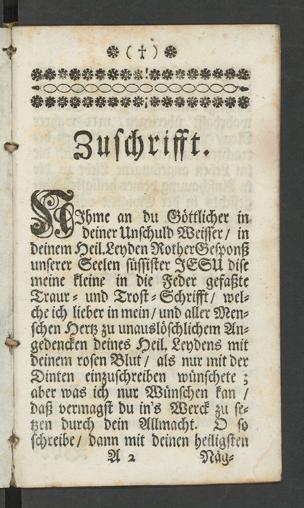 (†)
Zuschrifft.
NIhme an du Göttlicher in
deiner Unschuld Weisser / in
deinem Heil. Leyden Rother Gesponß
unserer Seelen süssister JESU dise
meine kleine in die Feder gefaßte
Traur- und Trost-Schrifft / wel-
che ich lieber in mein / und aller Men-
schen Hertz zu unauslöschlichem An-
gedencken deines Heil. Leydens mit
deinem rosen Blut / als nur mit der
Dinten einzuschreiben wünschete ;
aber was ich nur Wünschen kan /
daß vermagst du in's Werck zu se-
tzen durch dein Allmacht. O so
schreibe / dann mit deinen heiligsten
A 2 Näg-